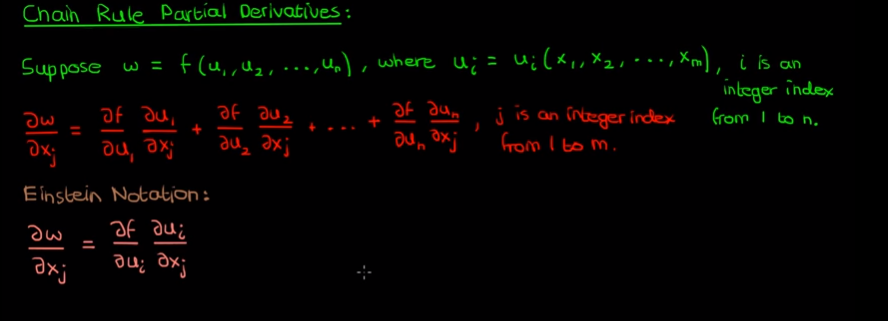 Chain Rule Partial Derivatives:
Suppose w = f(u₁, u₂, ..., uₙ), where uᵢ = uᵢ(x₁, x₂, ..., xₘ), i is an
integer index
from 1 to n.
∂w/∂xⱼ = ∂f/∂u₁ ∂u₁/∂xⱼ + ∂f/∂u₂ ∂u₂/∂xⱼ + ... + ∂f/∂uₙ ∂uₙ/∂xⱼ, j is an integer index
from 1 to m.
Einstein Notation:
∂w/∂xⱼ = ∂f/∂uᵢ ∂uᵢ/∂xⱼ